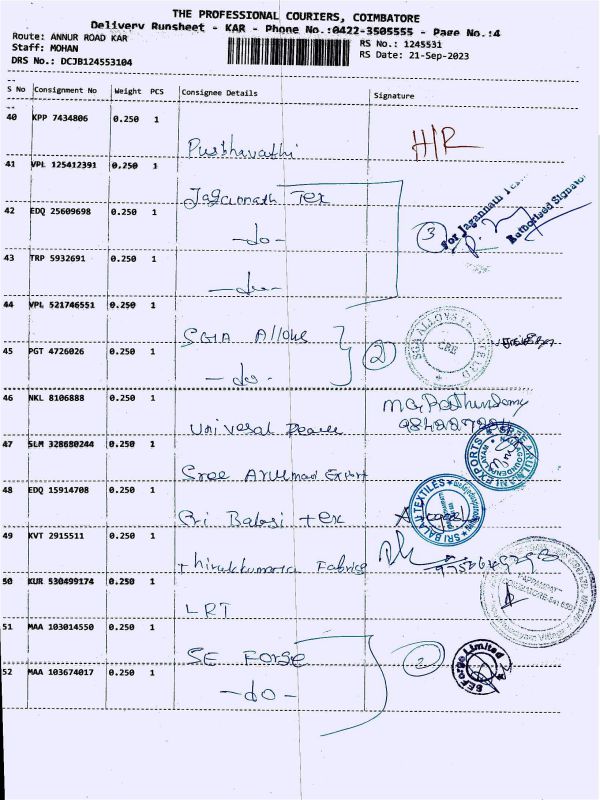 THE PROFESSIONAL COURIERS, COIMBATORE
Delivery Runsheet - KAR - Phone No.:0422-3505555 - Page No.:4
Route: ANNUR ROAD KAR
RS No.: 1245531
Staff: MOHAN
RS Date: 21-Sep-2023
DRS No.: DCJB124553104
S No Consignment No Weight PCS Consignee Details Signature
40 KPP 7434806 0.250 1
Pushavathi H/R
41 VPL 125412391 0.250 1
Jagannath Tex
For Jagannath Tex
Authorised Signator
42 EDQ 25609698 0.250 1
-do- 3
43 TRP 5932691 0.250 1
-do-
44 VPL 521746551 0.250 1
SGA Alloys
45 PGT 4726026 0.250 1
-do- 2
46 NKL 8106888 0.250 1
Universal
47 SLM 328680244 0.250 1
Sree Arulmani Export
48 EDQ 15914708 0.250 1
SRI BALAJI TEXTILES
Sri Balaji tex
49 KVT 2915511 0.250 1
Thirukkumara Fabrics
50 KUR 530499174 0.250 1
LRT
COIMBATORE-641
51 MAA 103014550 0.250 1
SE Forge 2
SEForge Limited
52 MAA 103674017 0.250 1
-do-